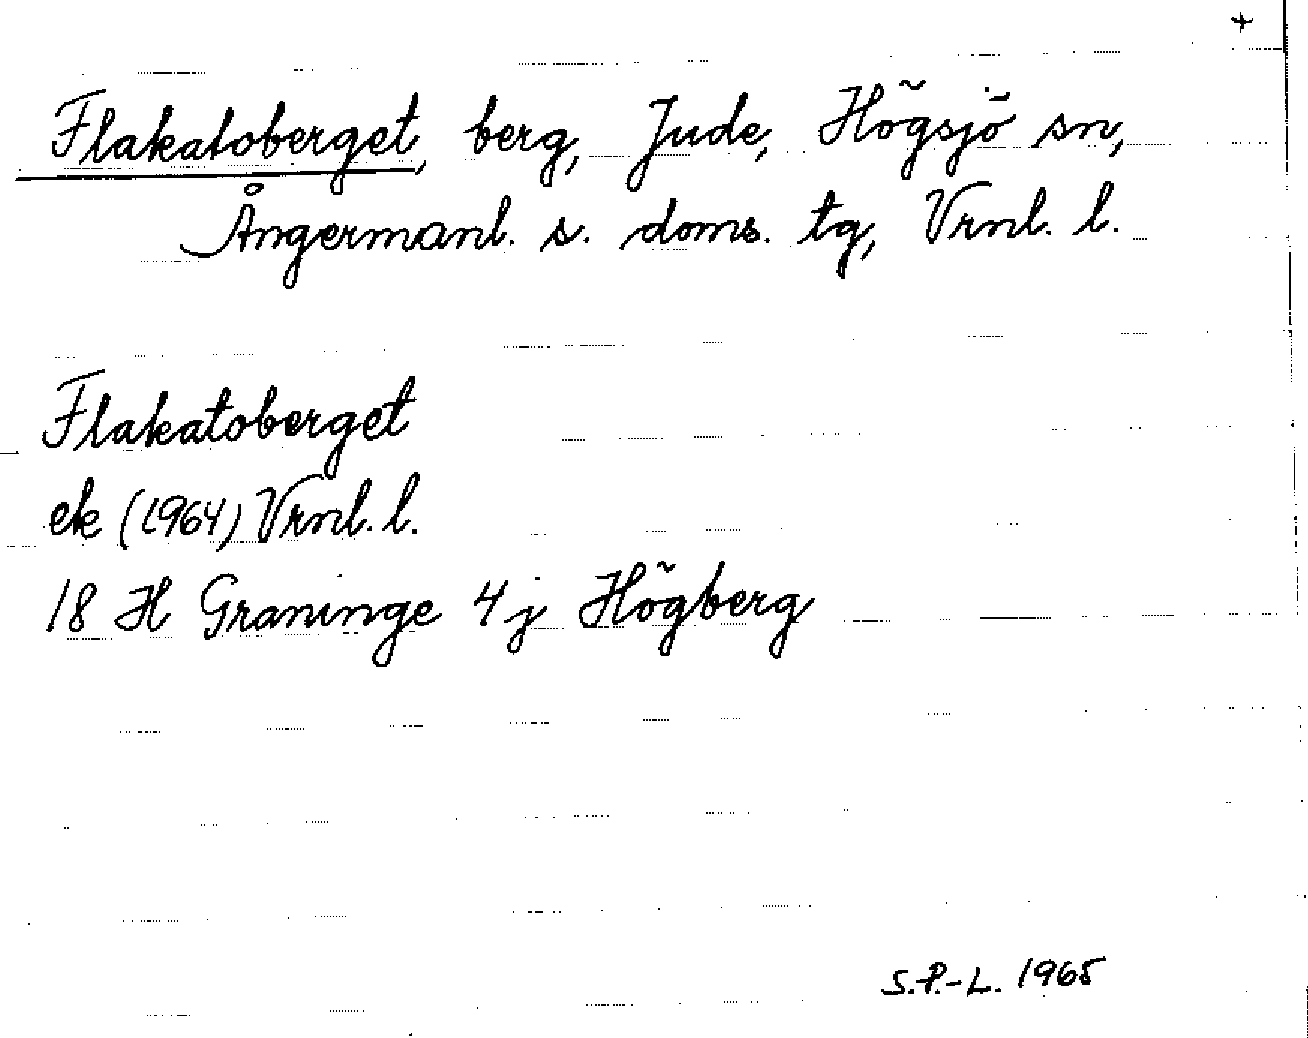 +
Flakatoberget, berg, Jude, Högsjö sn,
Ångermanl. s. doms. tg, Vrnl. l.
Flakatoberget
ek (1964) Vrnl. l.
18 H Graninge 4 j Högberg
S.P.-L. 1965